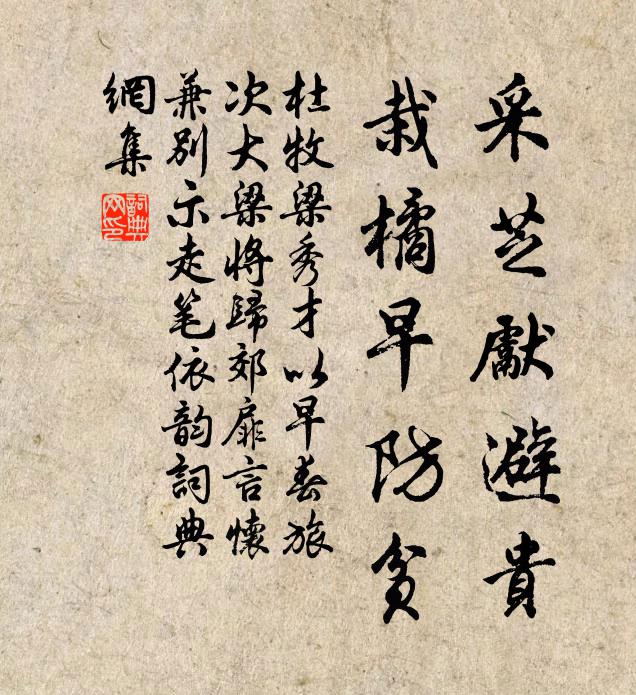 采芝獻避貴
栽橘早防貧
杜牧梁秀才以早春旅
次大梁將歸郊扉言懷
兼别示走笔依韵詞典
網集
詞典网印